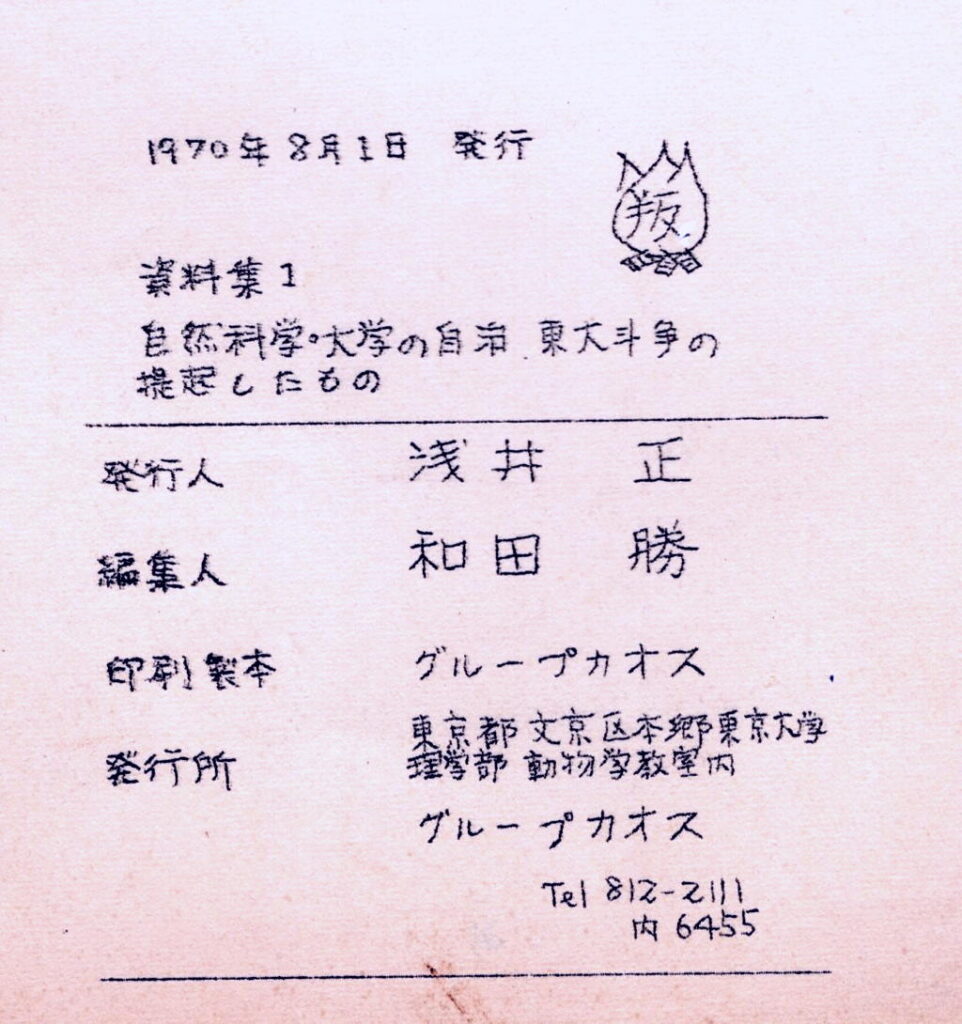 1970年8月1日 発行
叛
資料集1
自然科学・大学の自治 東大斗争の
提起したもの
発行人 浅井 正
編集人 和田 勝
印刷製本 グループカオス
発行所 東京都文京区本郷東京大学
理学部 動物学教室内
グループカオス
Tel 812-2111
内 6455